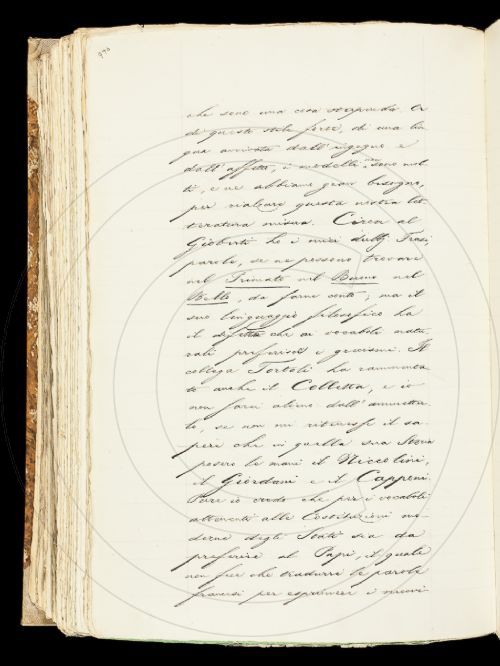 970
che sono una cosa stupenda. Or
di questo stile forte, di una lin
gua avvivata dall'ingegno e
dall'affetto, i modelli non sono mol
ti, e ne abbiamo gran bisogno,
per rialzare questa nostra let
teratura misera. Circa al
Gioberti ho i miei dubbj. Frasi,
parole, se ne possono trovare
nel Primato nel Buono nel
Bello, da farne conto; ma il
suo linguaggio filosofico ha
il difetto che ai vocaboli natu
rali preferisce i grecismi. Il
collega Tortoli ha rammenta
to anche il Colletta, e io
non farei alieno dall'ammetter
lo, se non mi ritenesse il sa
pere che in quella sua Storia
posero le mani il Niccolini,
il Giordani e il Capponi.
Pure io credo che per i vocaboli
attenenti alle Costituzioni mo
derne degli Stati sia da
preferire al Papi, il quale
non fece che tradurre le parole
francesi per esprimere i nuovi